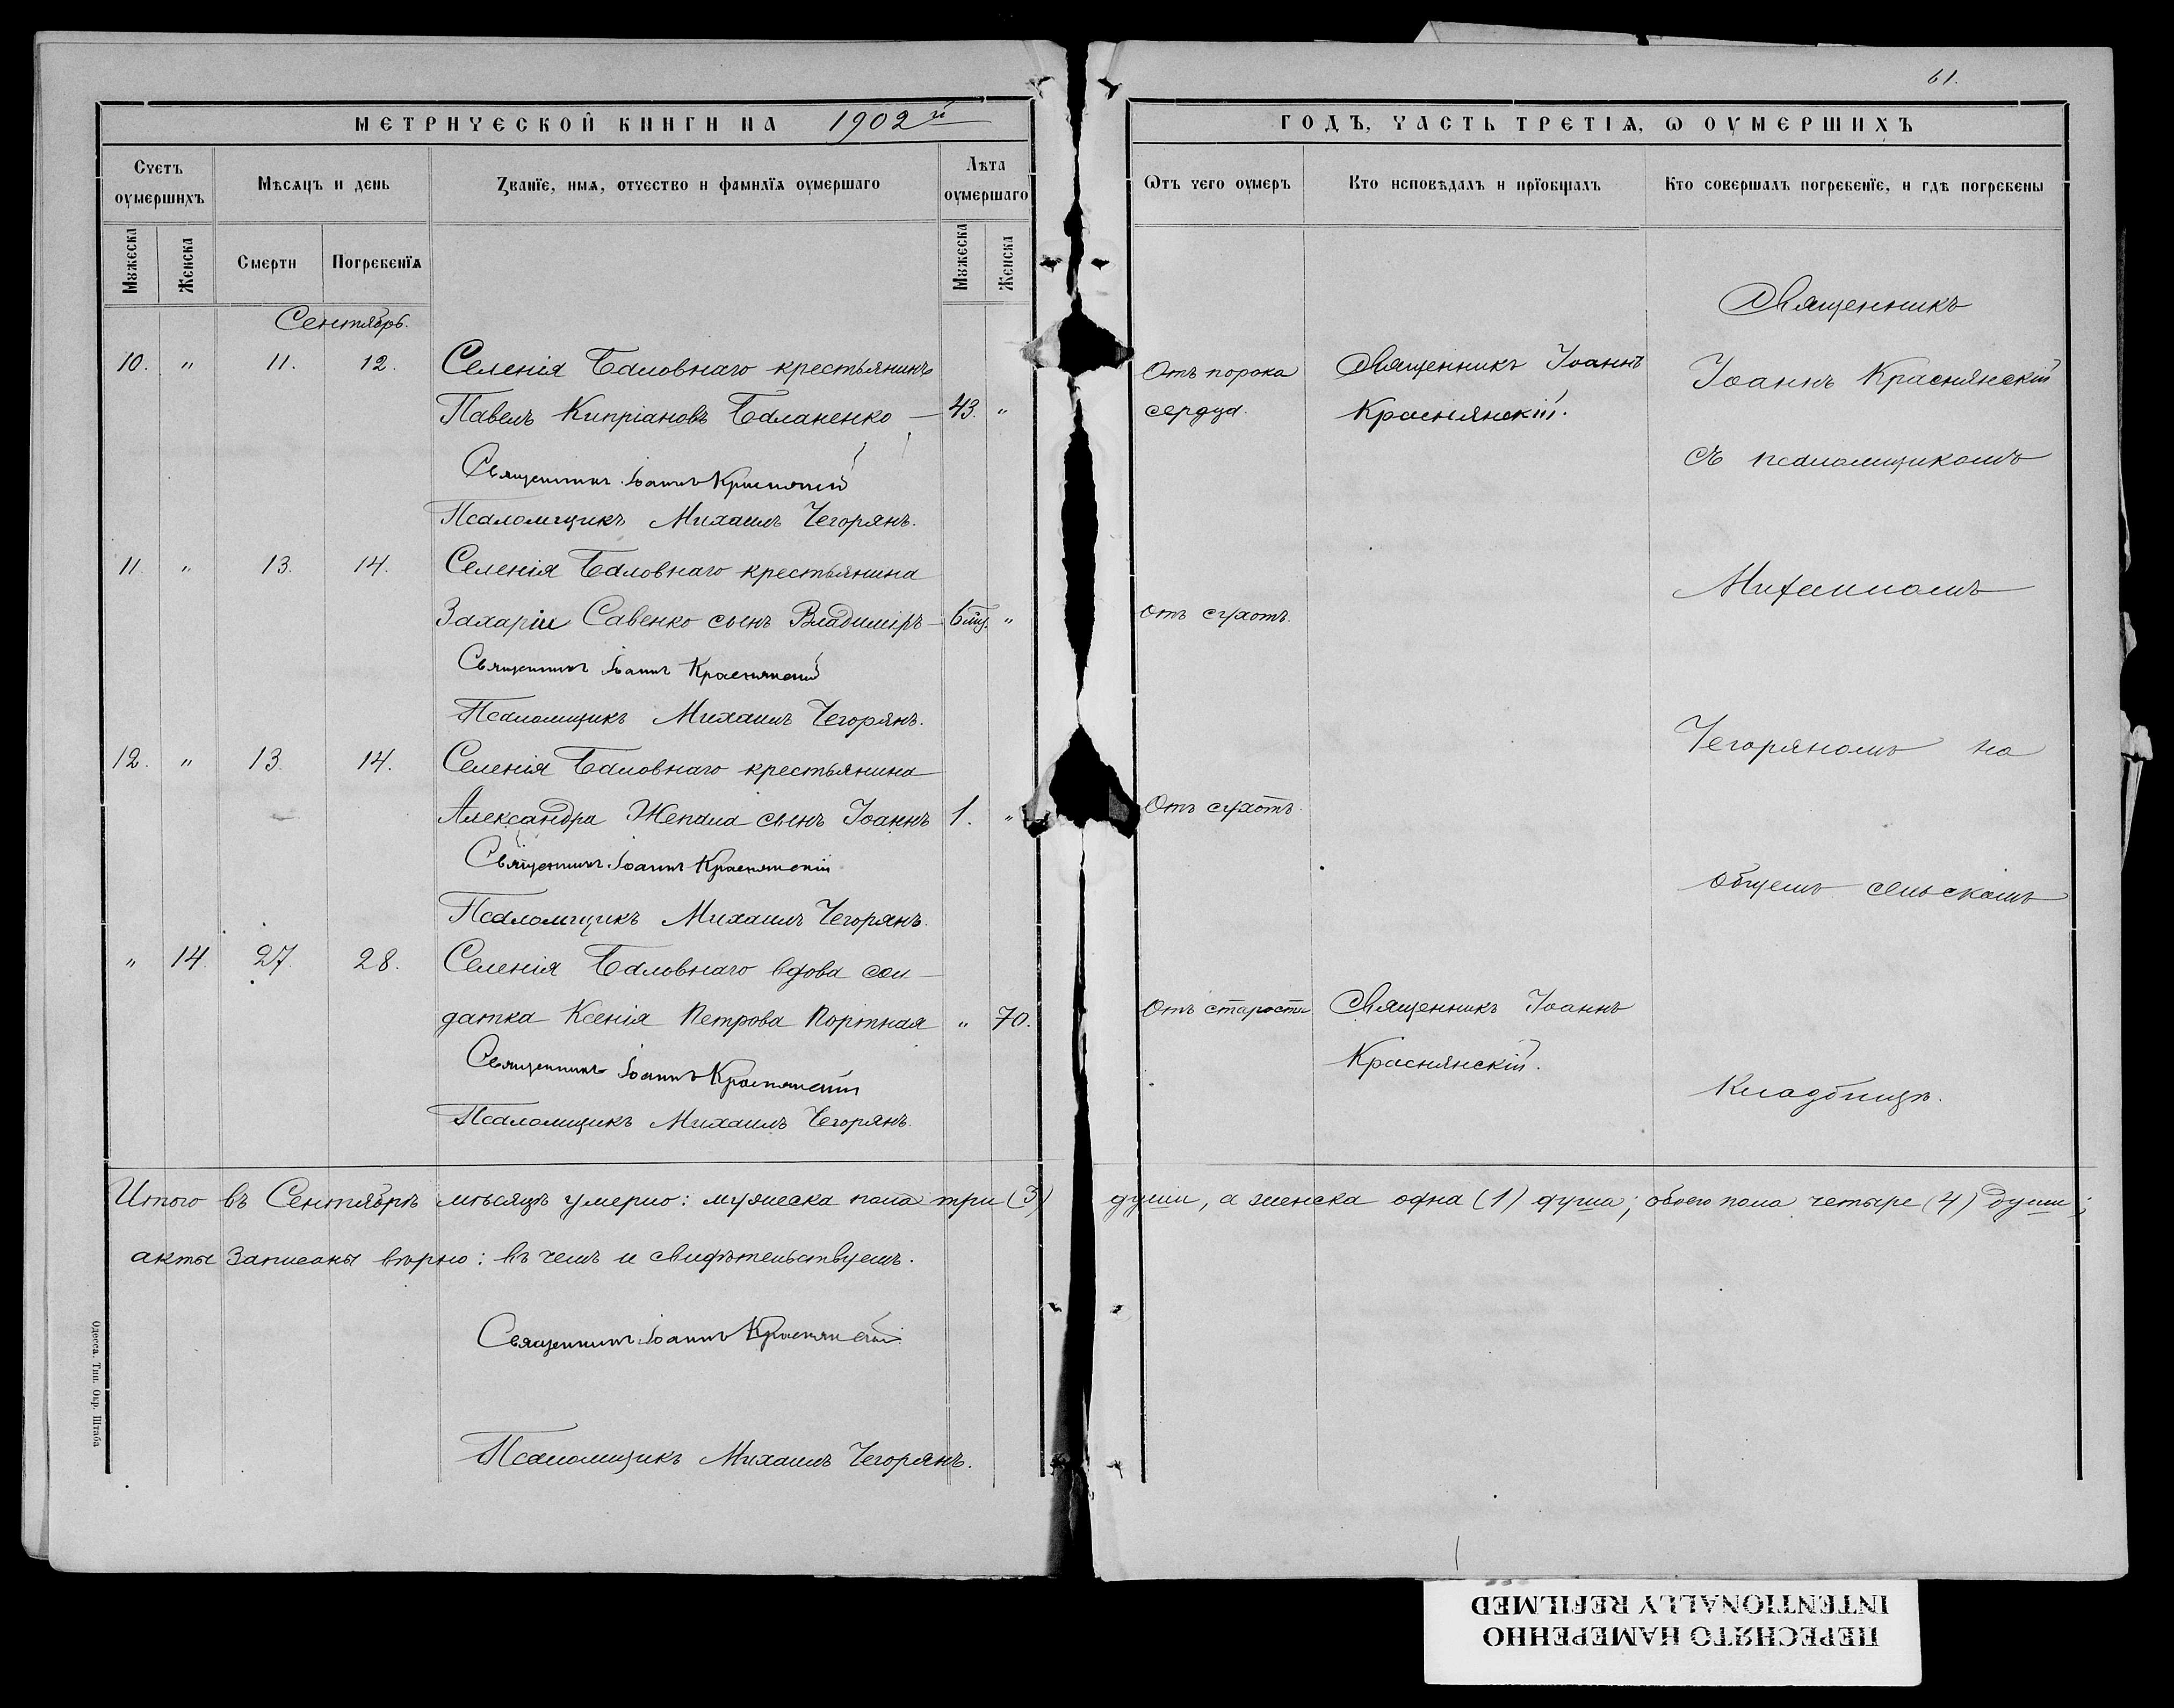 61.
МЕТРИЧЕСКОЙ КНИГИ НА 1902й
ГОДЪ, ЧАСТЬ ТРЕТІѦ, Ѡ ОУМЕРШИХЪ
Счетъ оумершихъ
Мѣсѧцъ и день
Званїе, имѧ, отчество и фамилїѧ оумершаго
Лѣта оумершаго
Ѡтъ чего оумеръ
Кто исповѣдалъ и прїобщалъ
Кто совершалъ погребенїе, и гдѣ погребены
Мужеска
Женска
Смерти
Погребенїѧ
Мужеска
Женска
Сентябрь.
10. " 11. 12. Селенія Баловнаго крестьянинъ
Павелъ Кипріановъ Баланенко — 43. "
Священникъ Іоаннъ Краснянскій
Псаломщикъ Михаилъ Чегорянъ.
11. " 13. 14. Селенія Баловнаго крестьянина
Захаріи Савенко сынъ Владиміръ — 6 мц. "
Священникъ Іоаннъ Краснянскій
Псаломщикъ Михаилъ Чегорянъ.
12. " 13. 14. Селенія Баловнаго крестьянина
Александра Жепала сынъ Іоаннъ 1. "
Священникъ Іоаннъ Краснянскій
Псаломщикъ Михаилъ Чегорянъ.
" 14. 27. 28. Селенія Баловнаго вдова сол-
датка Ксенія Петрова Портная " 70.
Священникъ Іоаннъ Краснянскій
Псаломщикъ Михаилъ Чегорянъ.
Отъ порока
сердца.
Отъ сухотъ.
Отъ сухотъ.
Отъ старости
Священникъ Іоаннъ
Краснянскій.
Священникъ Іоаннъ
Краснянскій.
Священникъ
Іоаннъ Краснянскій
съ псаломщикомъ
Михаиломъ
Чегоряномъ на
общемъ сельскомъ
кладбищѣ.
Итого въ Сентябрѣ мѣсяцѣ умерло: мужеска пола три (3) души, а женска одна (1) душа; обоего пола четыре (4) души;
акты записаны вѣрно: въ чемъ и свидѣтельствуемъ.
Священникъ Іоаннъ Краснянскій
Псаломщикъ Михаилъ Чегорянъ.
Одесса. Тип. Окр. Штаба
ПЕРЕСНЯТО НАМЕРЕННО
INTENTIONALLY REFILMED